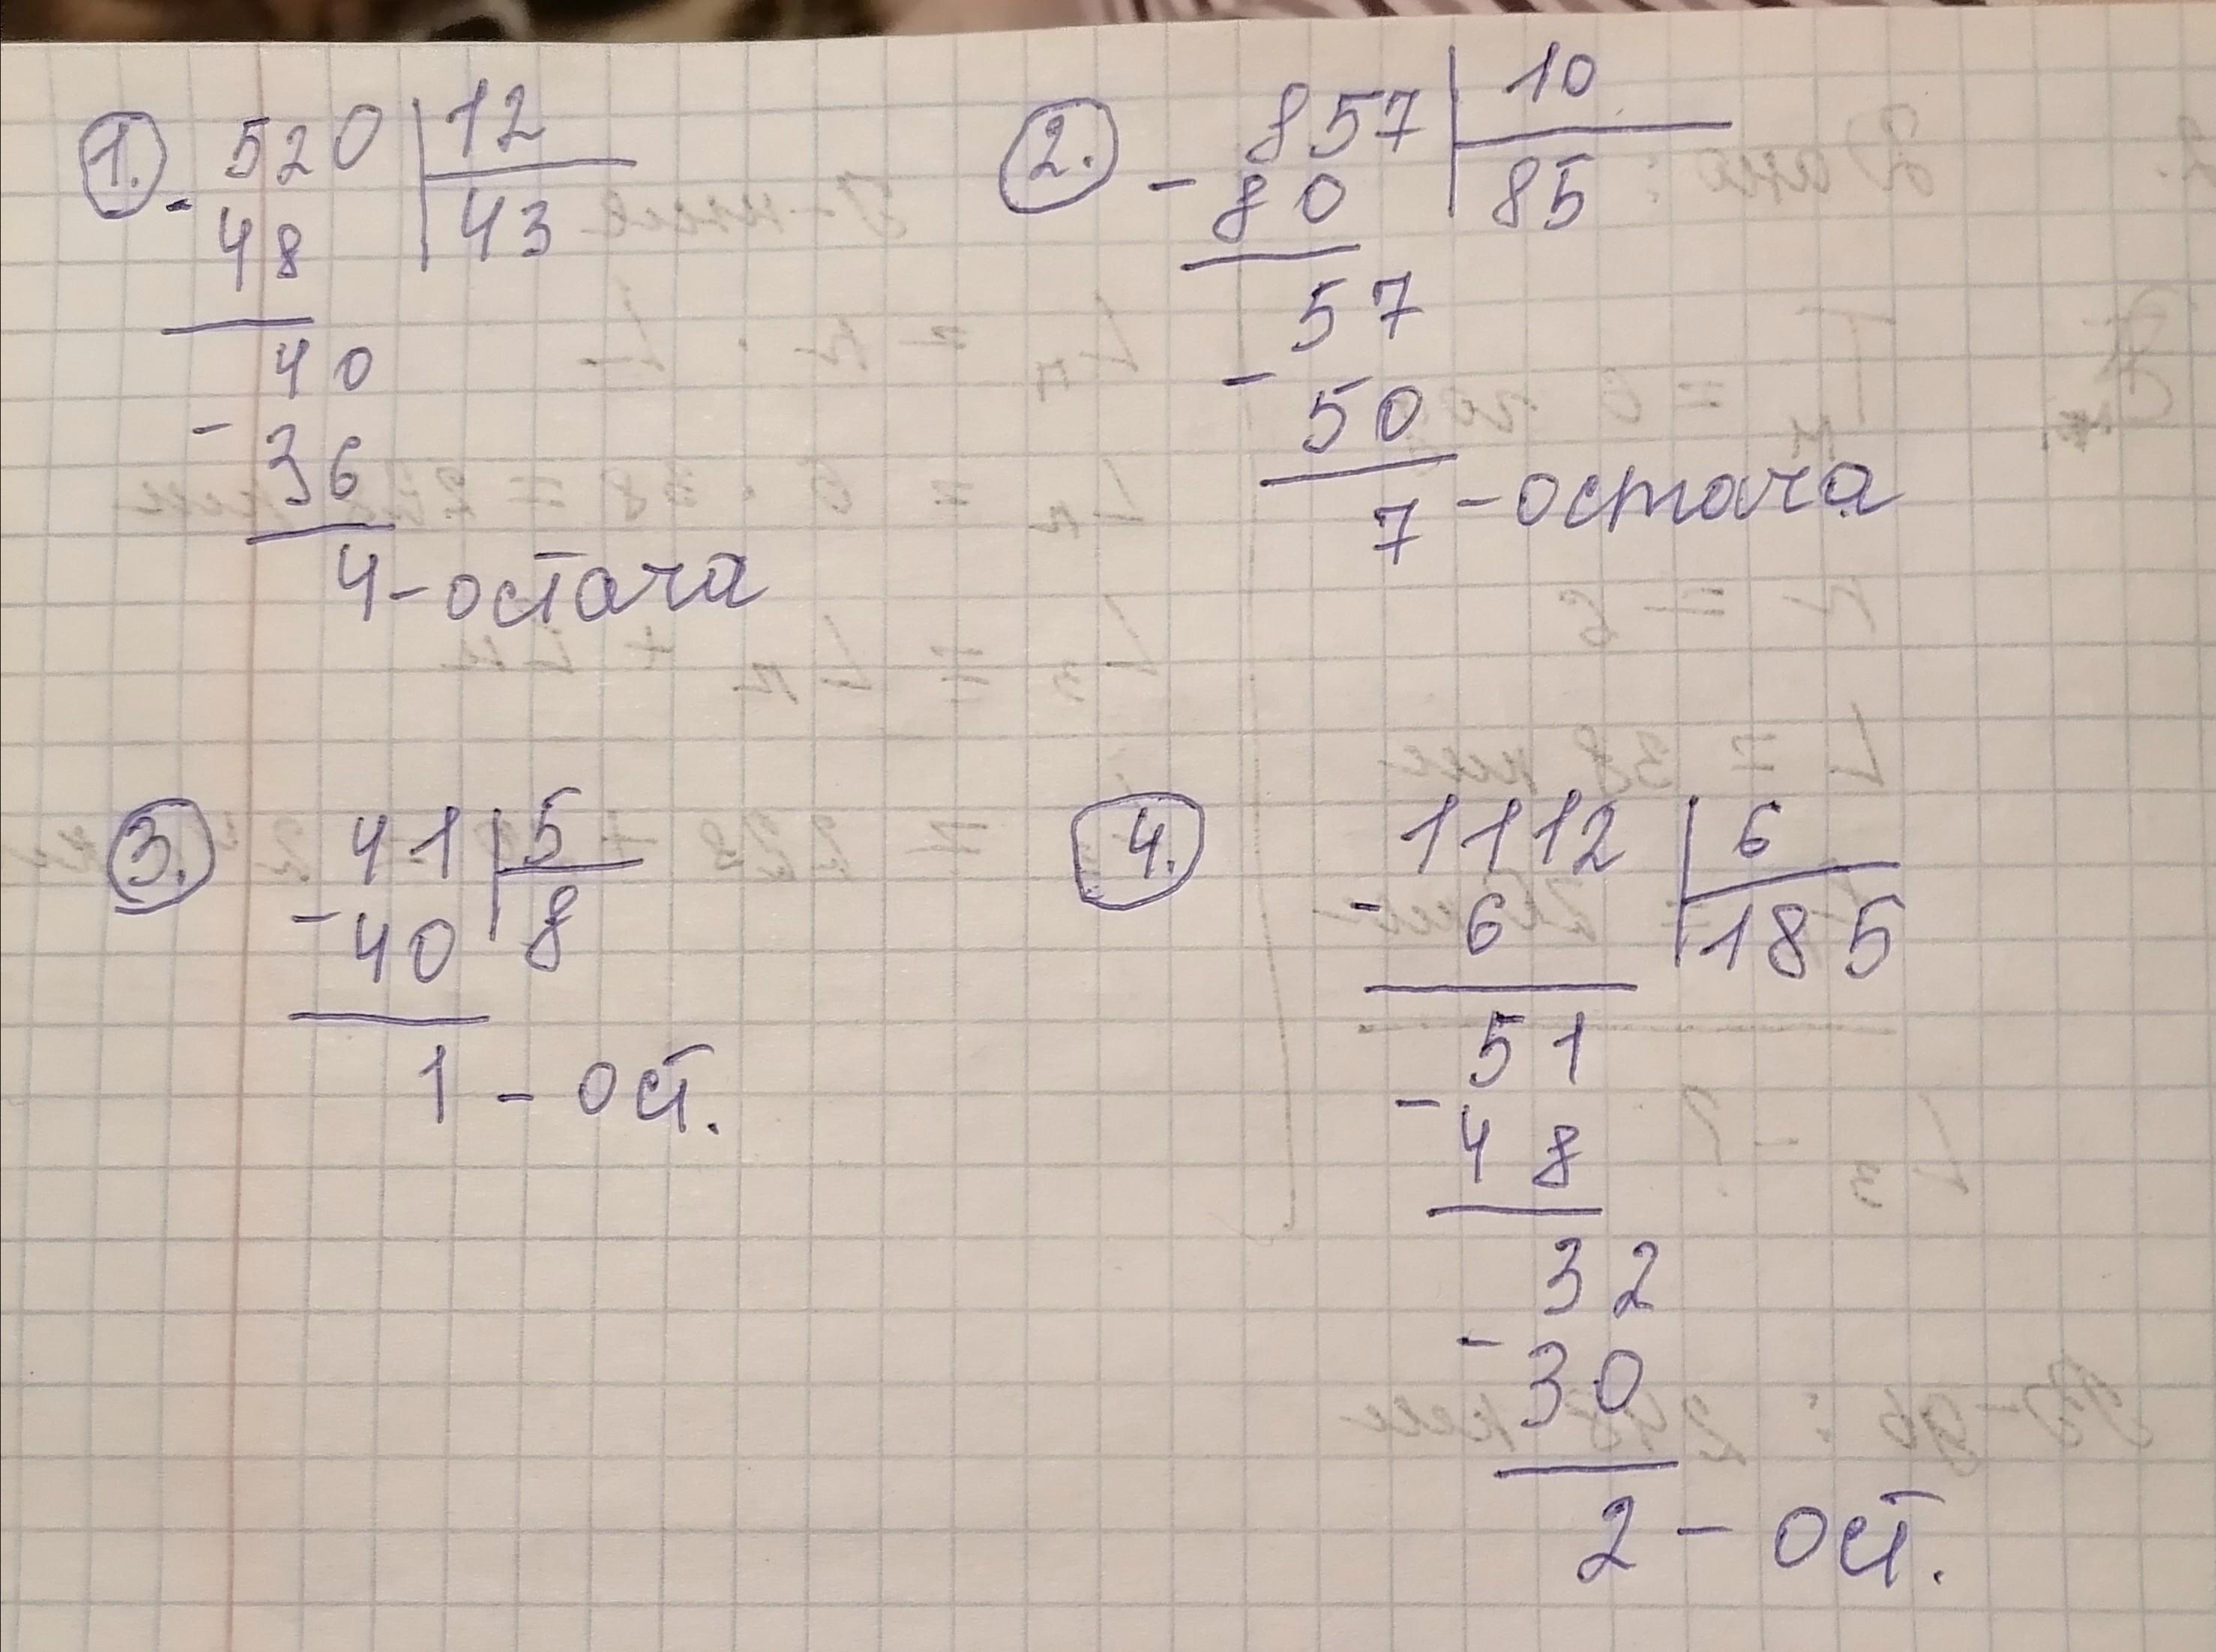 1. 520 | 12
- 48 | 43
40
- 36
4 - остача
2. 857 | 10
- 80 | 85
57
- 50
7 - остача
3. 41 | 5
- 40 | 8
1 - ост.
4. 1112 | 6
- 6 | 185
51
- 48
32
- 30
2 - ост.